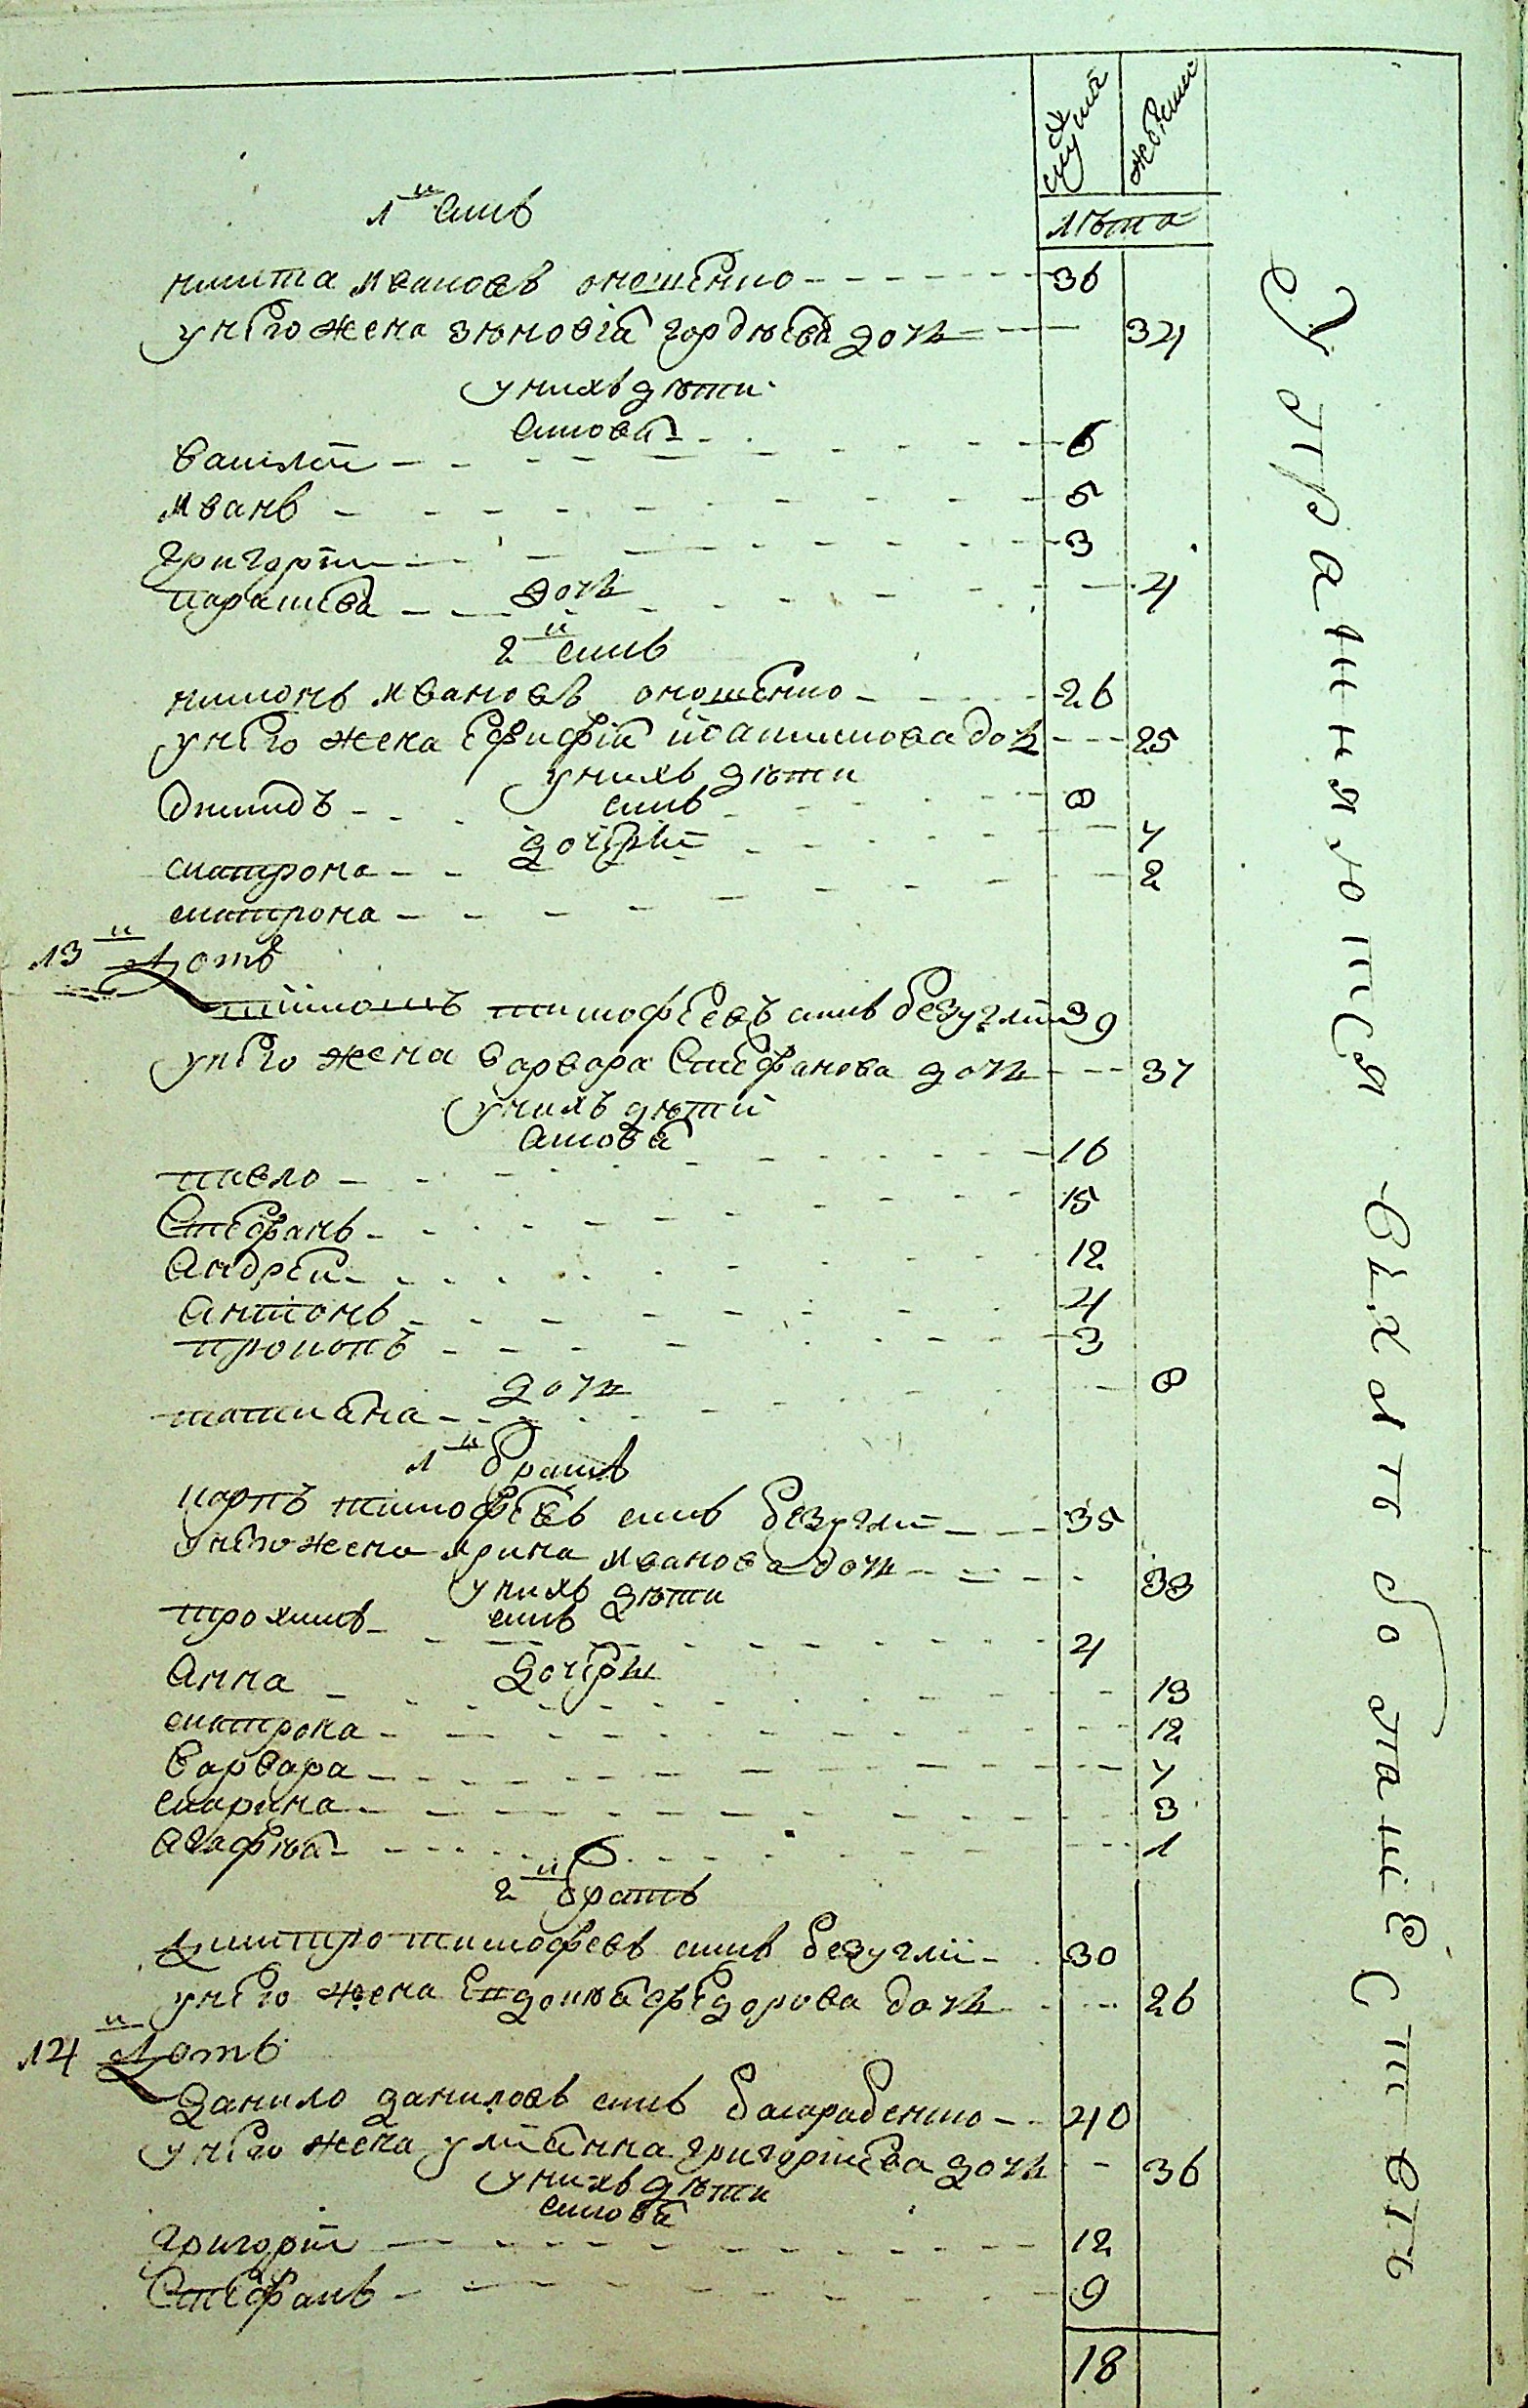 мужеска
женска
лѣта
1й синъ
Никита Ивановъ Онощенко 36
у него жена Зѣновія Гордѣева дочь 34
у нихъ дѣти
синовя
Василій 6
Иванъ 5
Григорій 3
дочь
Параскева 4
2й синъ
Никонъ Ивановъ Онощенко 26
у него жена Евфифія Іоакимова дочь 25
у нихъ дѣти
синъ
Диμидъ 8
дочери
Матрона 7
Матрона 2
13й Дотъ
Тимошъ Тимофеевъ синъ Безуглій 39
у него жена Варвара Стефанова дочь 37
у нихъ дѣти
синовя
Павло 16
Стефанъ 15
Андрей 12
Антонъ 4
Прокопъ 3
дочь
Татияна 8
1й братъ
Карпъ Тимофеевъ синъ Безуглій 35
у него жена Ирина Иванова дочь 33
у нихъ дѣти
синъ
Трохимъ 4
дочери
Анна 13
Матрона 12
Варвара 7
Марина 3
Агафѣя 1
2й братъ
Дмитро Тимофеевъ синъ Безуглій 30
у него жена Евдокѣя Федорова дочь 26
14й Дотъ
Данило Даниловъ синъ Басарабенко 40
у него жена Уліянна Григоріева дочь 36
у нихъ дѣти
синовя
Григорій 12
Стефанъ 9
18